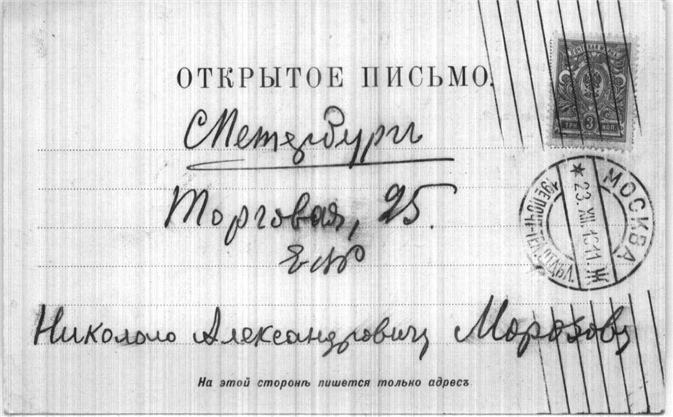 ОТКРЫТОЕ ПИСЬМО.
СПетербургъ
Торговая, 25.
ЕВ
Николаю Александровичу Морозову
На этой сторонѣ пишется только адресъ
МОСКВА
23.XII.1911.Ж
3